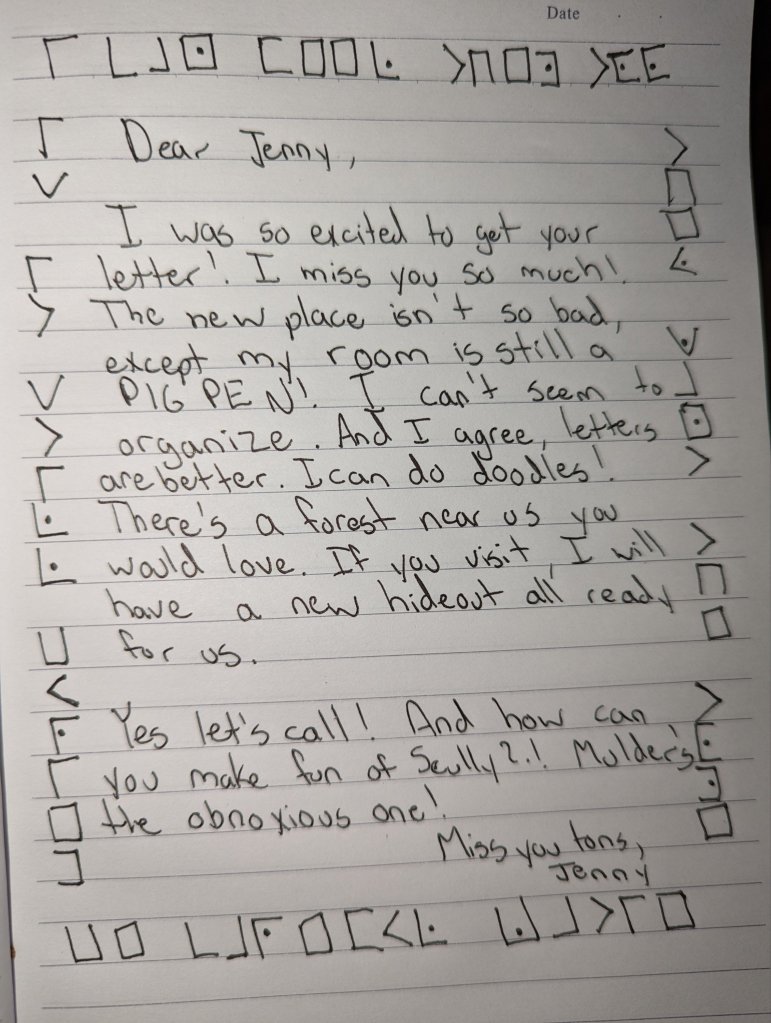 Date
Dear Jenny,
I was so excited to get your
letter! I miss you so much!
The new place isn't so bad,
except my room is still a
PIG PEN! I can't seem to
organize. And I agree, letters
are better. I can do doodles!
There's a forest near us you
would love. If you visit, I will
have a new hideout all ready
for us.
Yes let's call! And how can
you make fun of Scully?! Mulder's
the obnoxious one!
Miss you tons,
Jenny